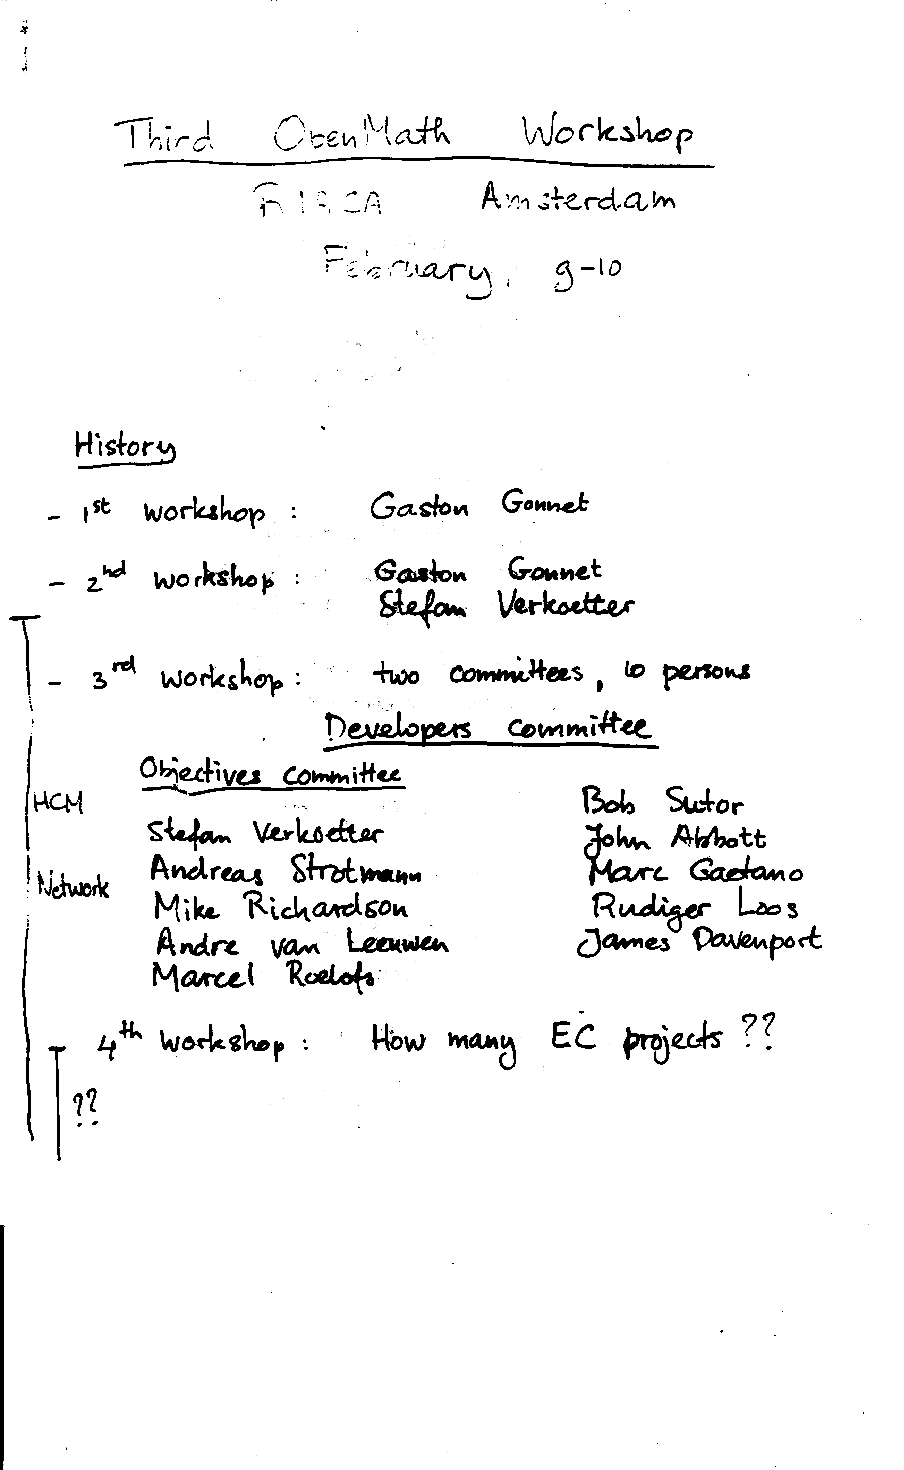 Third OpenMath Workshop
RIACA Amsterdam
February, 9-10
History
- 1st workshop : Gaston Gonnet
- 2nd workshop : Gaston Gonnet
Stefan Verkoetter
- 3rd workshop : two committees, 10 persons
Developers committee
Objectives committee
HCM
Bob Sutor
Stefan Verkoetter
John Abbott
Andreas Strotmann
Marc Gaetano
Network
Mike Richardson
Rudiger Loos
Andre van Leeuwen
James Davenport
Marcel Roelofs
4th workshop : How many EC projects ??
??